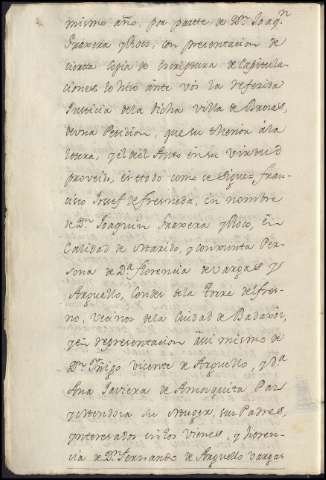 mismo año, por parte de Dn. Joaqn.
y Roco, con presentacion de
cierta copia de Escriptura de Capitula-
ciones, se hizo ante vos la referida
Justicia de la dicha villa de Brozas,
de una Peticion, que su thenor á la
letra, y el del Auto en su virtud
proveido, es todo como se sigue: Fran-
cisco Josef de Fresneda, en nombre
de Dn. Joaquin y Roco, en
Calidad de Marido, y conjunta Per-
sona de Da. Florencia de Vargas y
Arguello, Condes de la Torre del Fres-
no, vecinos de la Ciudad de Badaxoz,
y en representacion assi mismo de
Dn. Yñigo Vicente de Arguello, y Da.
Ana Javiera de
y Mendoza su Muger, sus Padres,
Ynteresados en los vienes, y heren-
cia de Dn. Fernando de Arguello Vargas